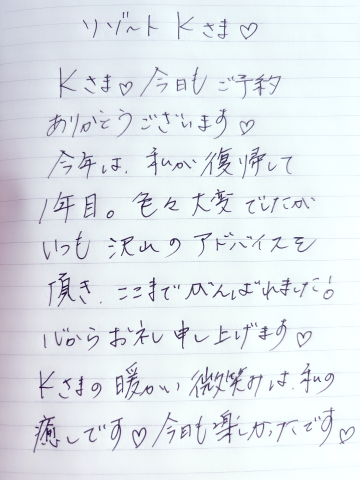 リゾート Kさま♡
Kさま♡今日もご予約
ありがとうございます♡
今年は、私が復帰して
1年目。色々大変でしたが
いつも沢山のアドバイスを
頂き、ここまでがんばれました!
心からお礼申し上げます♡
Kさまの暖かい微笑みは、私の
癒しです♡今日も楽しかったです♡